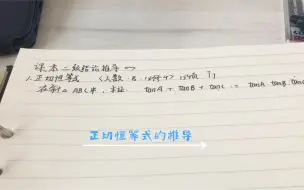 课本二级结论推导
1. 正切恒等式 (人教B
在斜△ABC中, 求证 tanA + tanB + tanC = tanA · tanB · tan
正切恒等式的推导